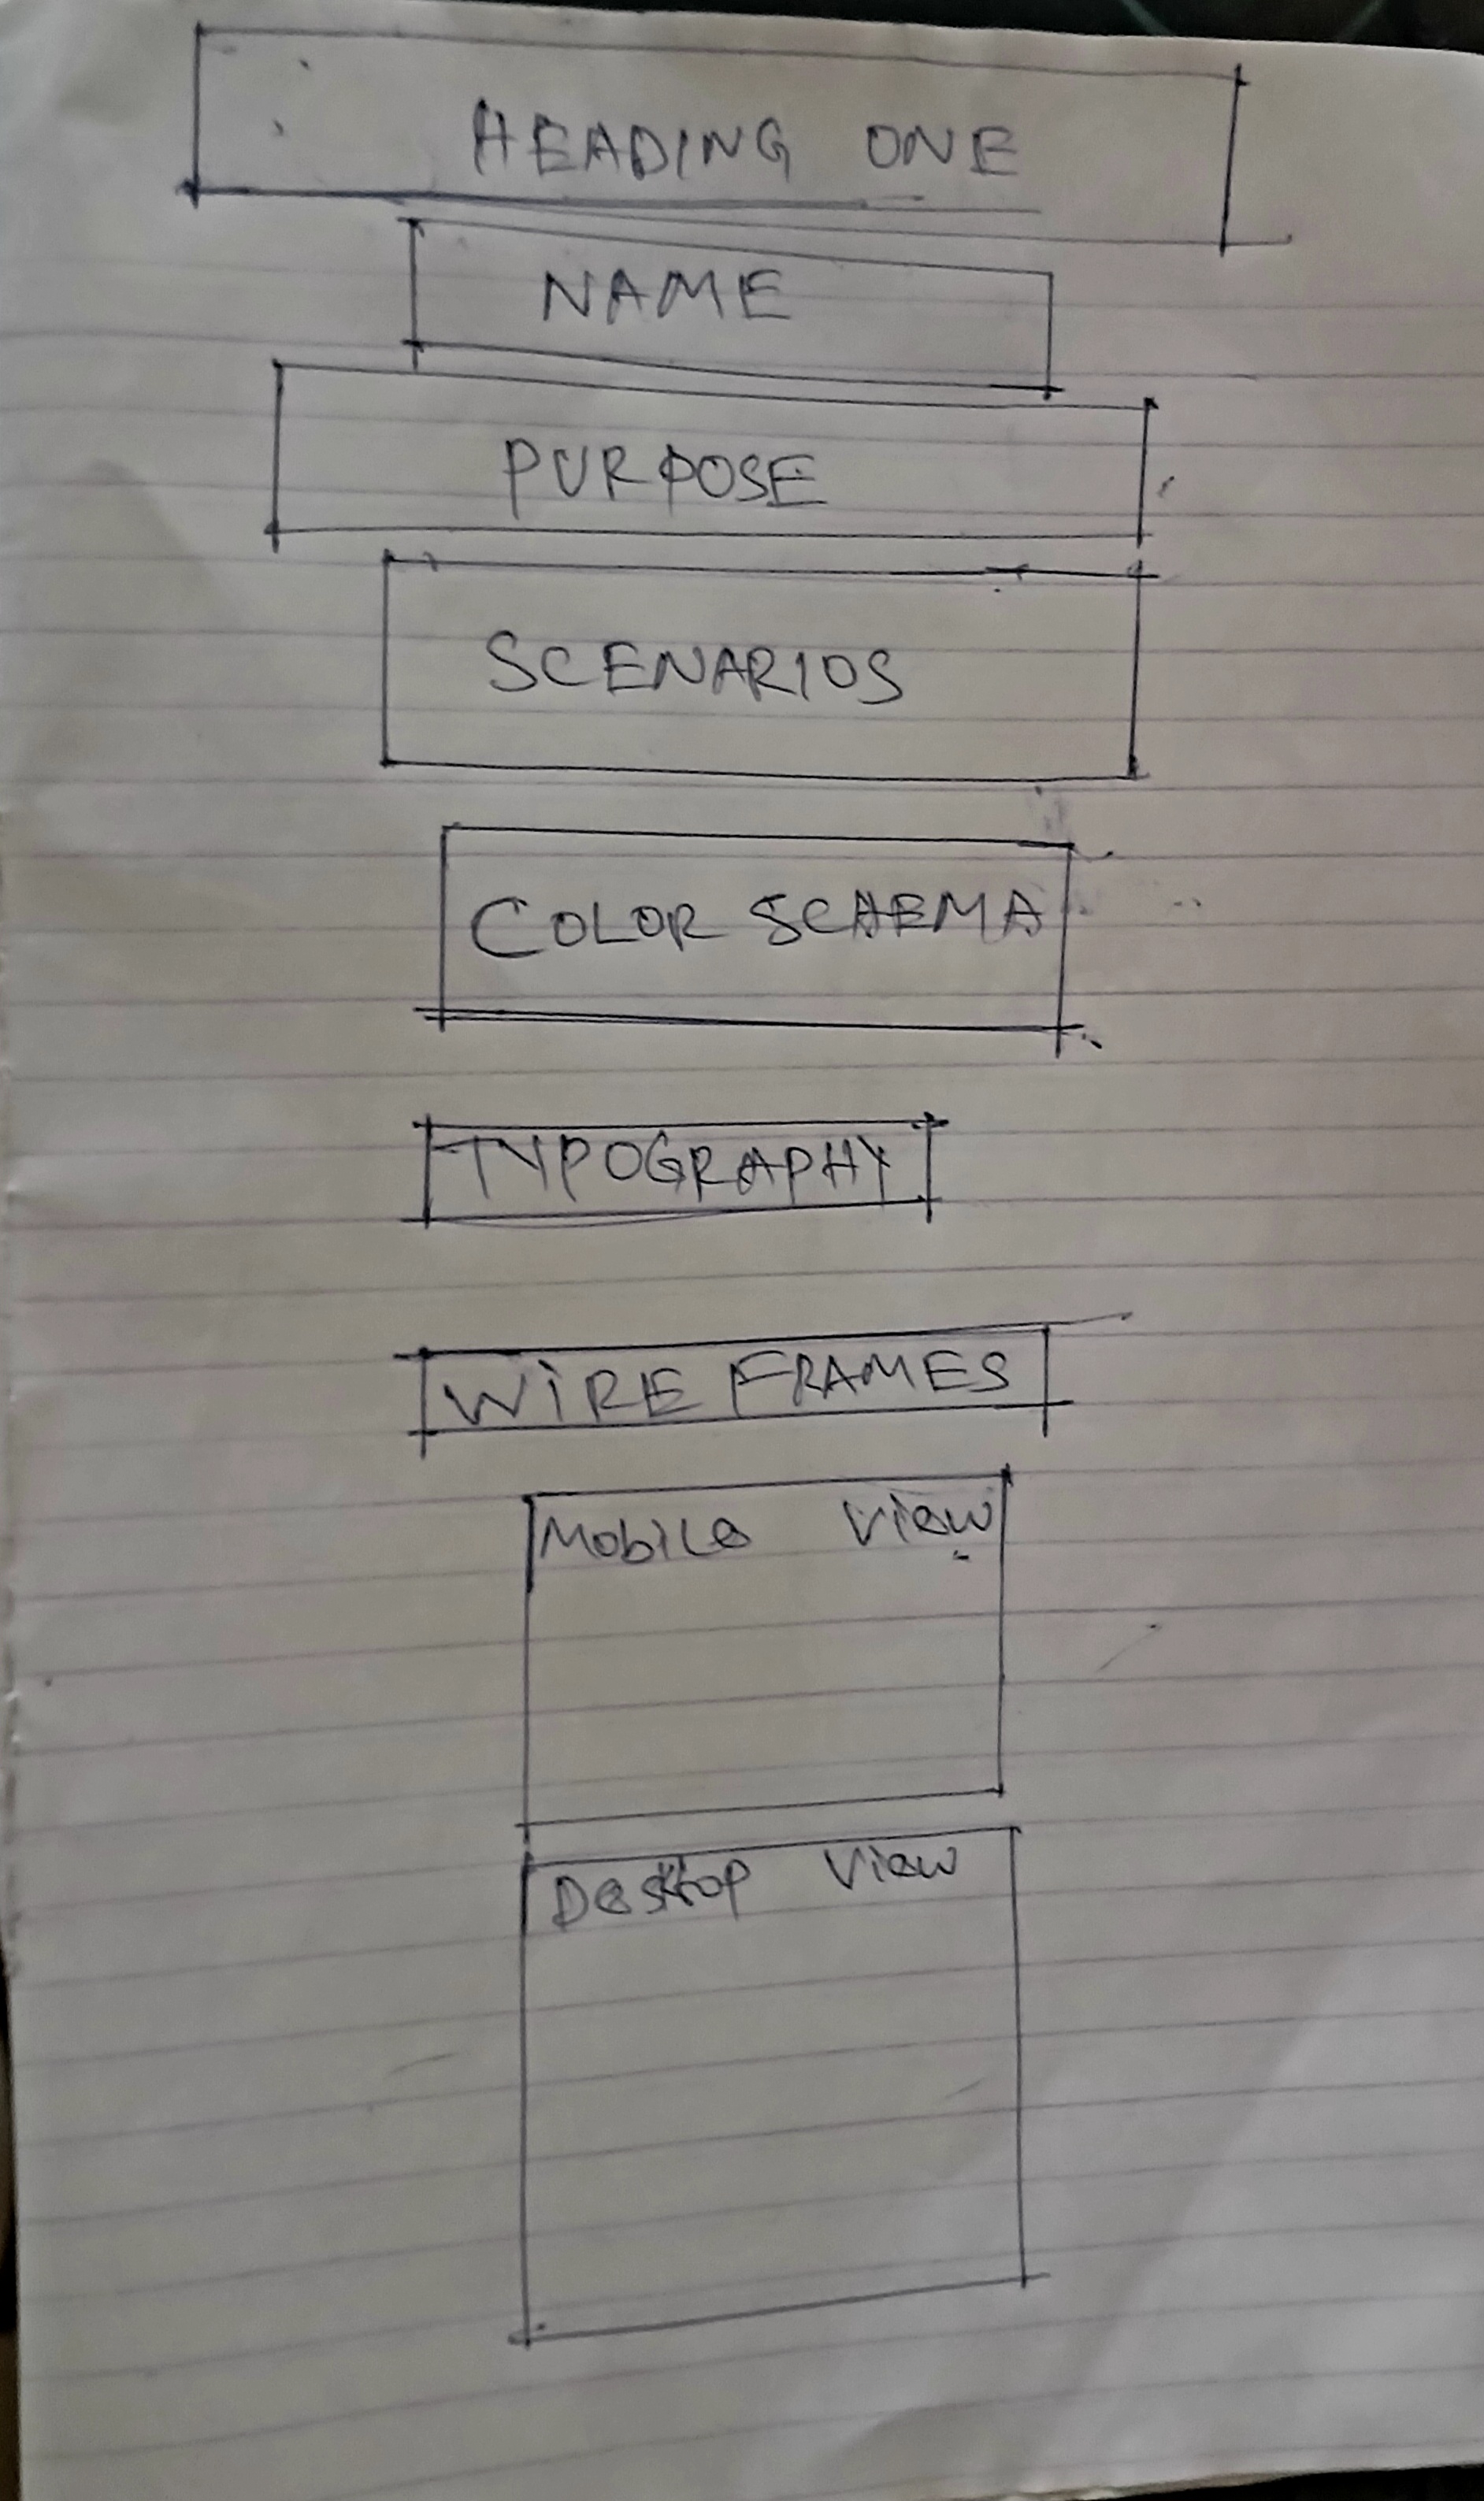 HEADING ONE
NAME
PURPOSE
SCENARIOS
COLOR SCHEMA
TYPOGRAPHY
WIRE FRAMES
Mobile View
Desktop View